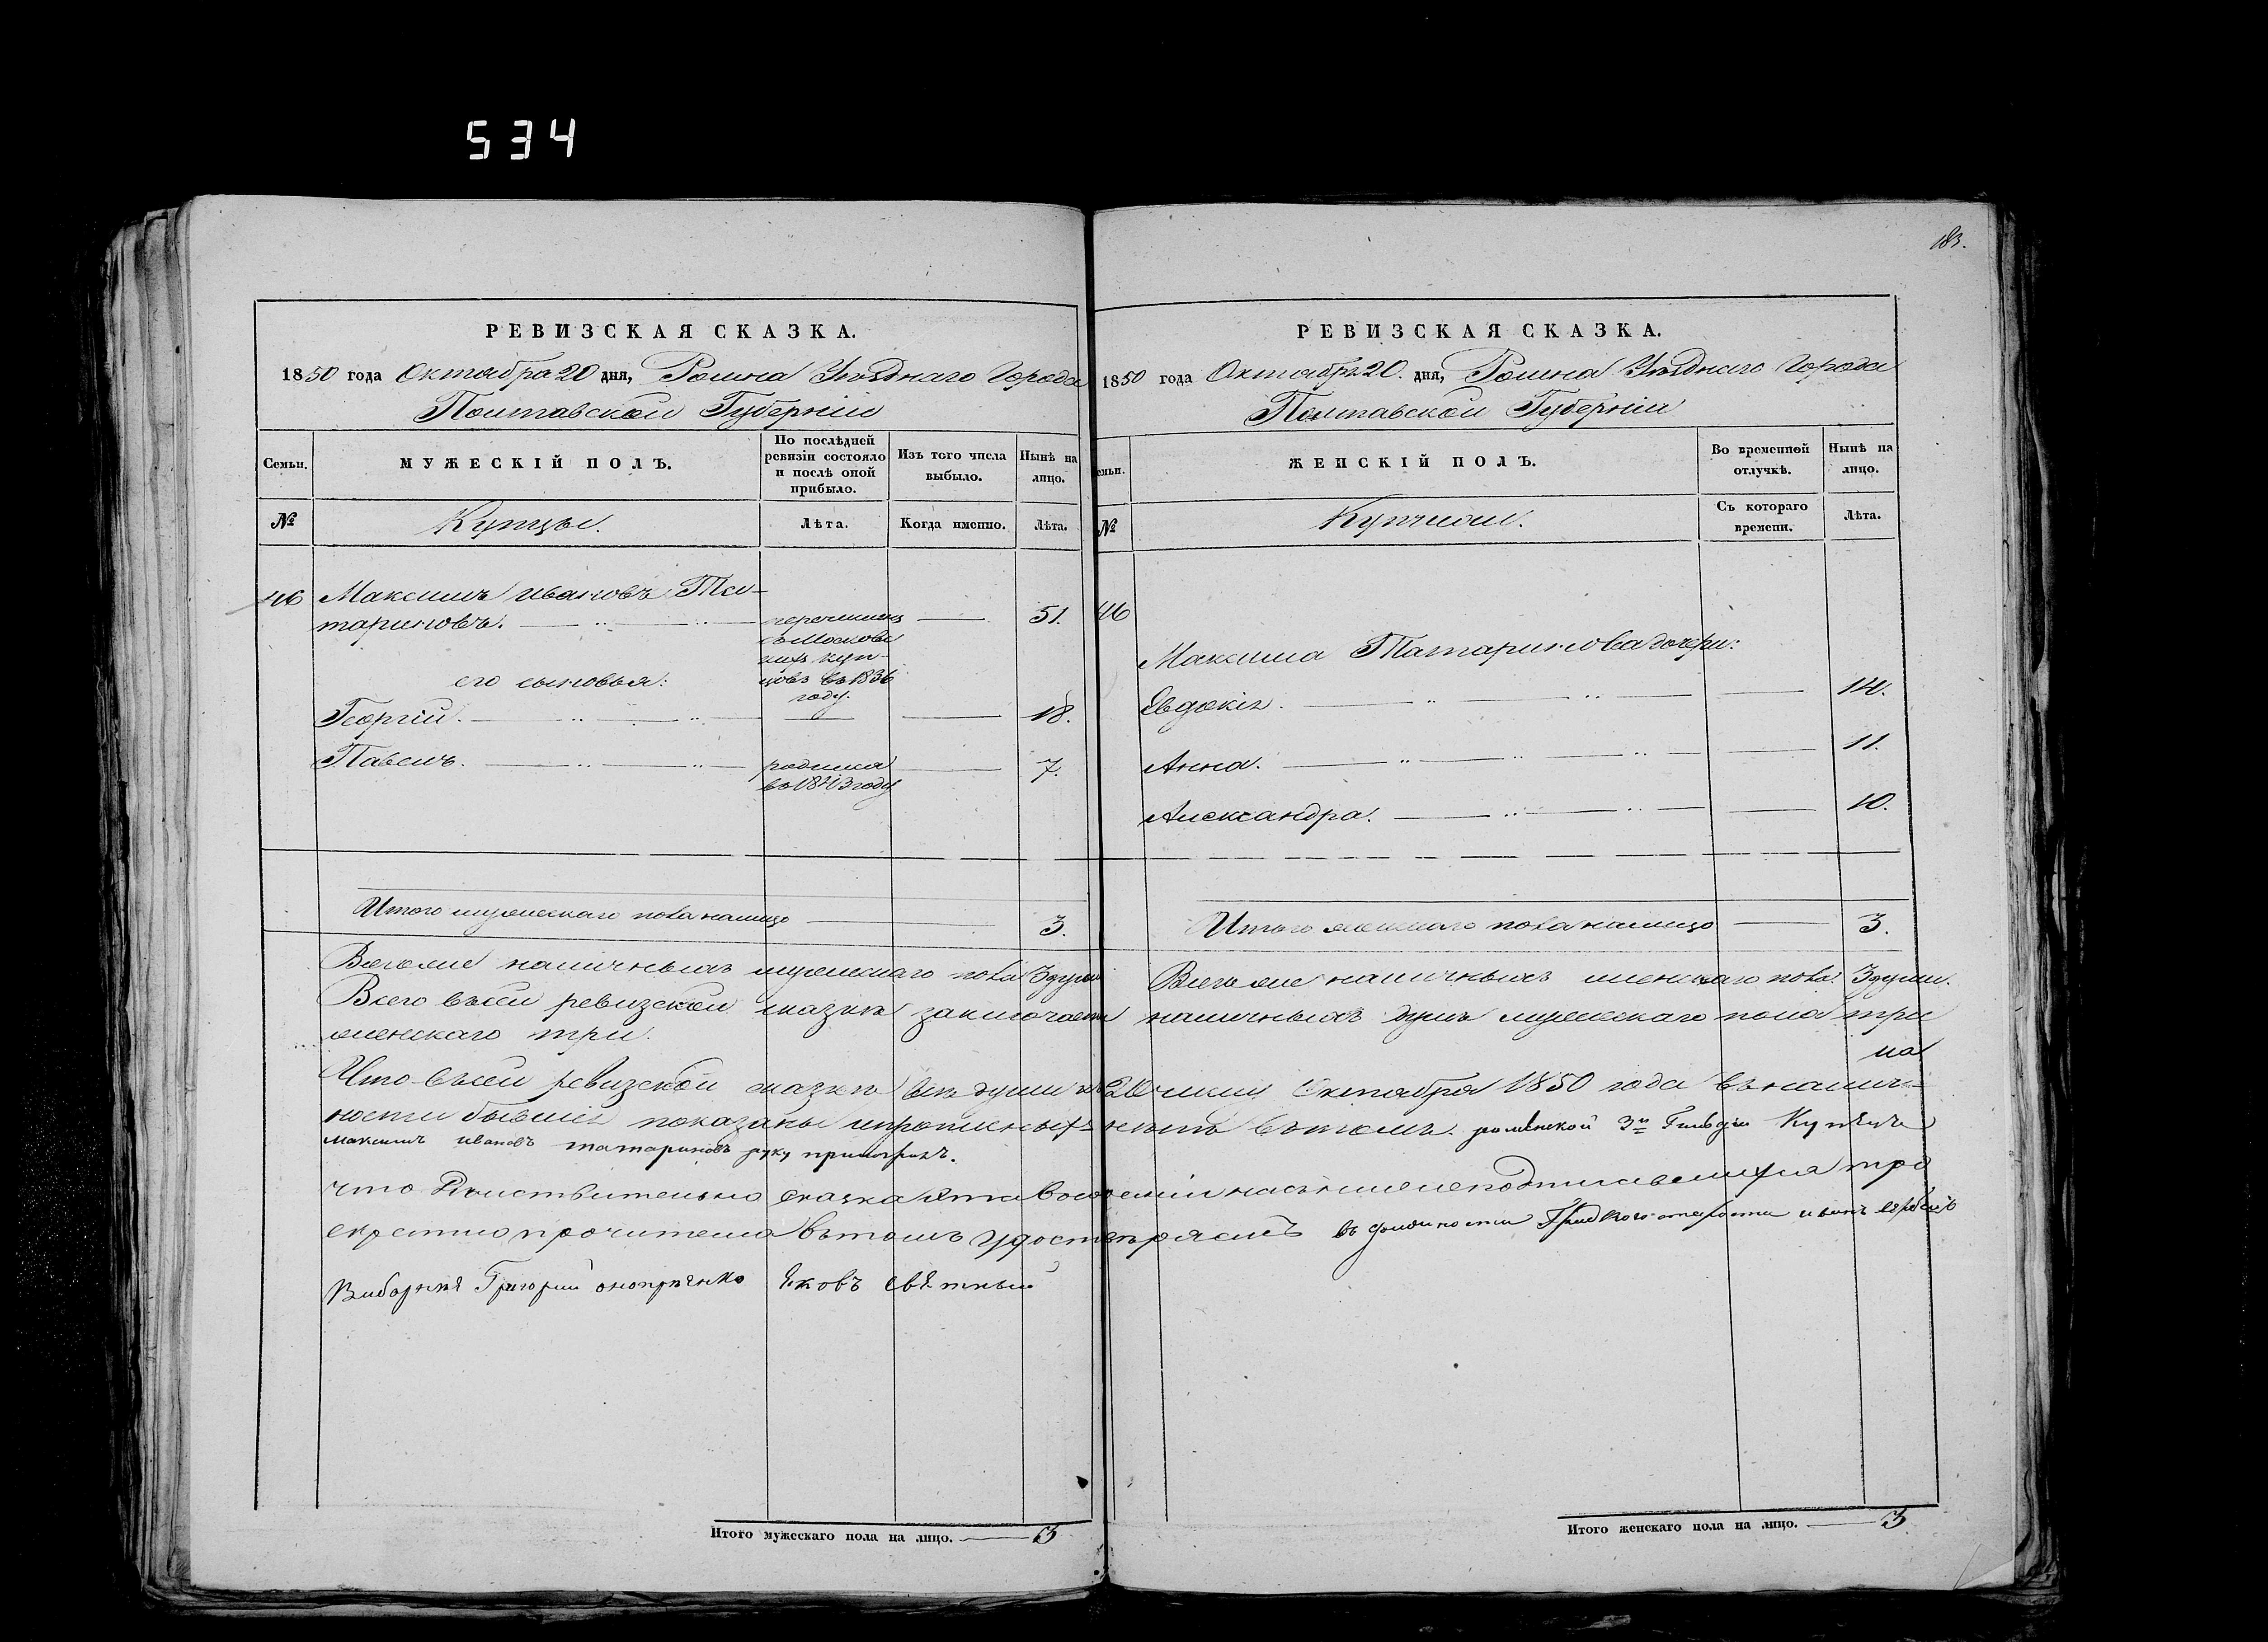 534
183.
РЕВИЗСКАЯ СКАЗКА.
1850 года Октября 20 дня, Ромна Уѣзднаго Города
Полтавской Губерніи
Семьи.
МУЖЕСКІЙ ПОЛЪ.
По послѣдней ревизіи состояло и послѣ оной прибыло.
Изъ того числа выбыло.
Нынѣ на лицо.
№
Купцы.
Лѣта.
Когда именно.
Лѣта.
46 Максимъ Ивановъ Та-
тариновъ. перечисленъ 51.
съ Московс
кихъ куп-
его сыновья: цовъ въ 1836
году.
Георгій. 18.
Павелъ. родился 7.
въ 1843 году
Итого мужескаго пола налицо 3.
РЕВИЗСКАЯ СКАЗКА.
1850 года Октября 20. дня, Ромна Уѣзднаго Города
Полтавской Губерніи
емьи.
ЖЕНСКІЙ ПОЛЪ.
Во временной отлучкѣ.
Нынѣ на лицо.
№
Купчихи.
Съ котораго времени.
Лѣта.
46
Максима Татаринова дочери:
Евдокія. 14.
Анна. 11.
Александра. 10.
Итого женскаго пола налицо 3.
Всего же наличныхъ мужескаго пола 3 души Всего же наличныхъ женскаго пола 3 души.
Всего въ сей ревизской сказкѣ заключается наличныхъ душъ мужескаго пола три
женскаго три.
Что въ сей ревизской сказкѣ всѣ души къ 20 числу Октября 1850 года въ налич-
ности бывшія показаны и прописныхъ нѣтъ въ томъ роменской 3й Гильдіи Купецъ
максимъ ивановъ татариновъ руку приложилъ.
что Дѣйствительно сказка эта
екратно прочитана въ томъ удостовѣряемъ въ должности старости иванъ
Григорий онопрѣенко Яковъ
Итого мужескаго пола на лицо. 3
Итого женскаго пола на лицо. 3